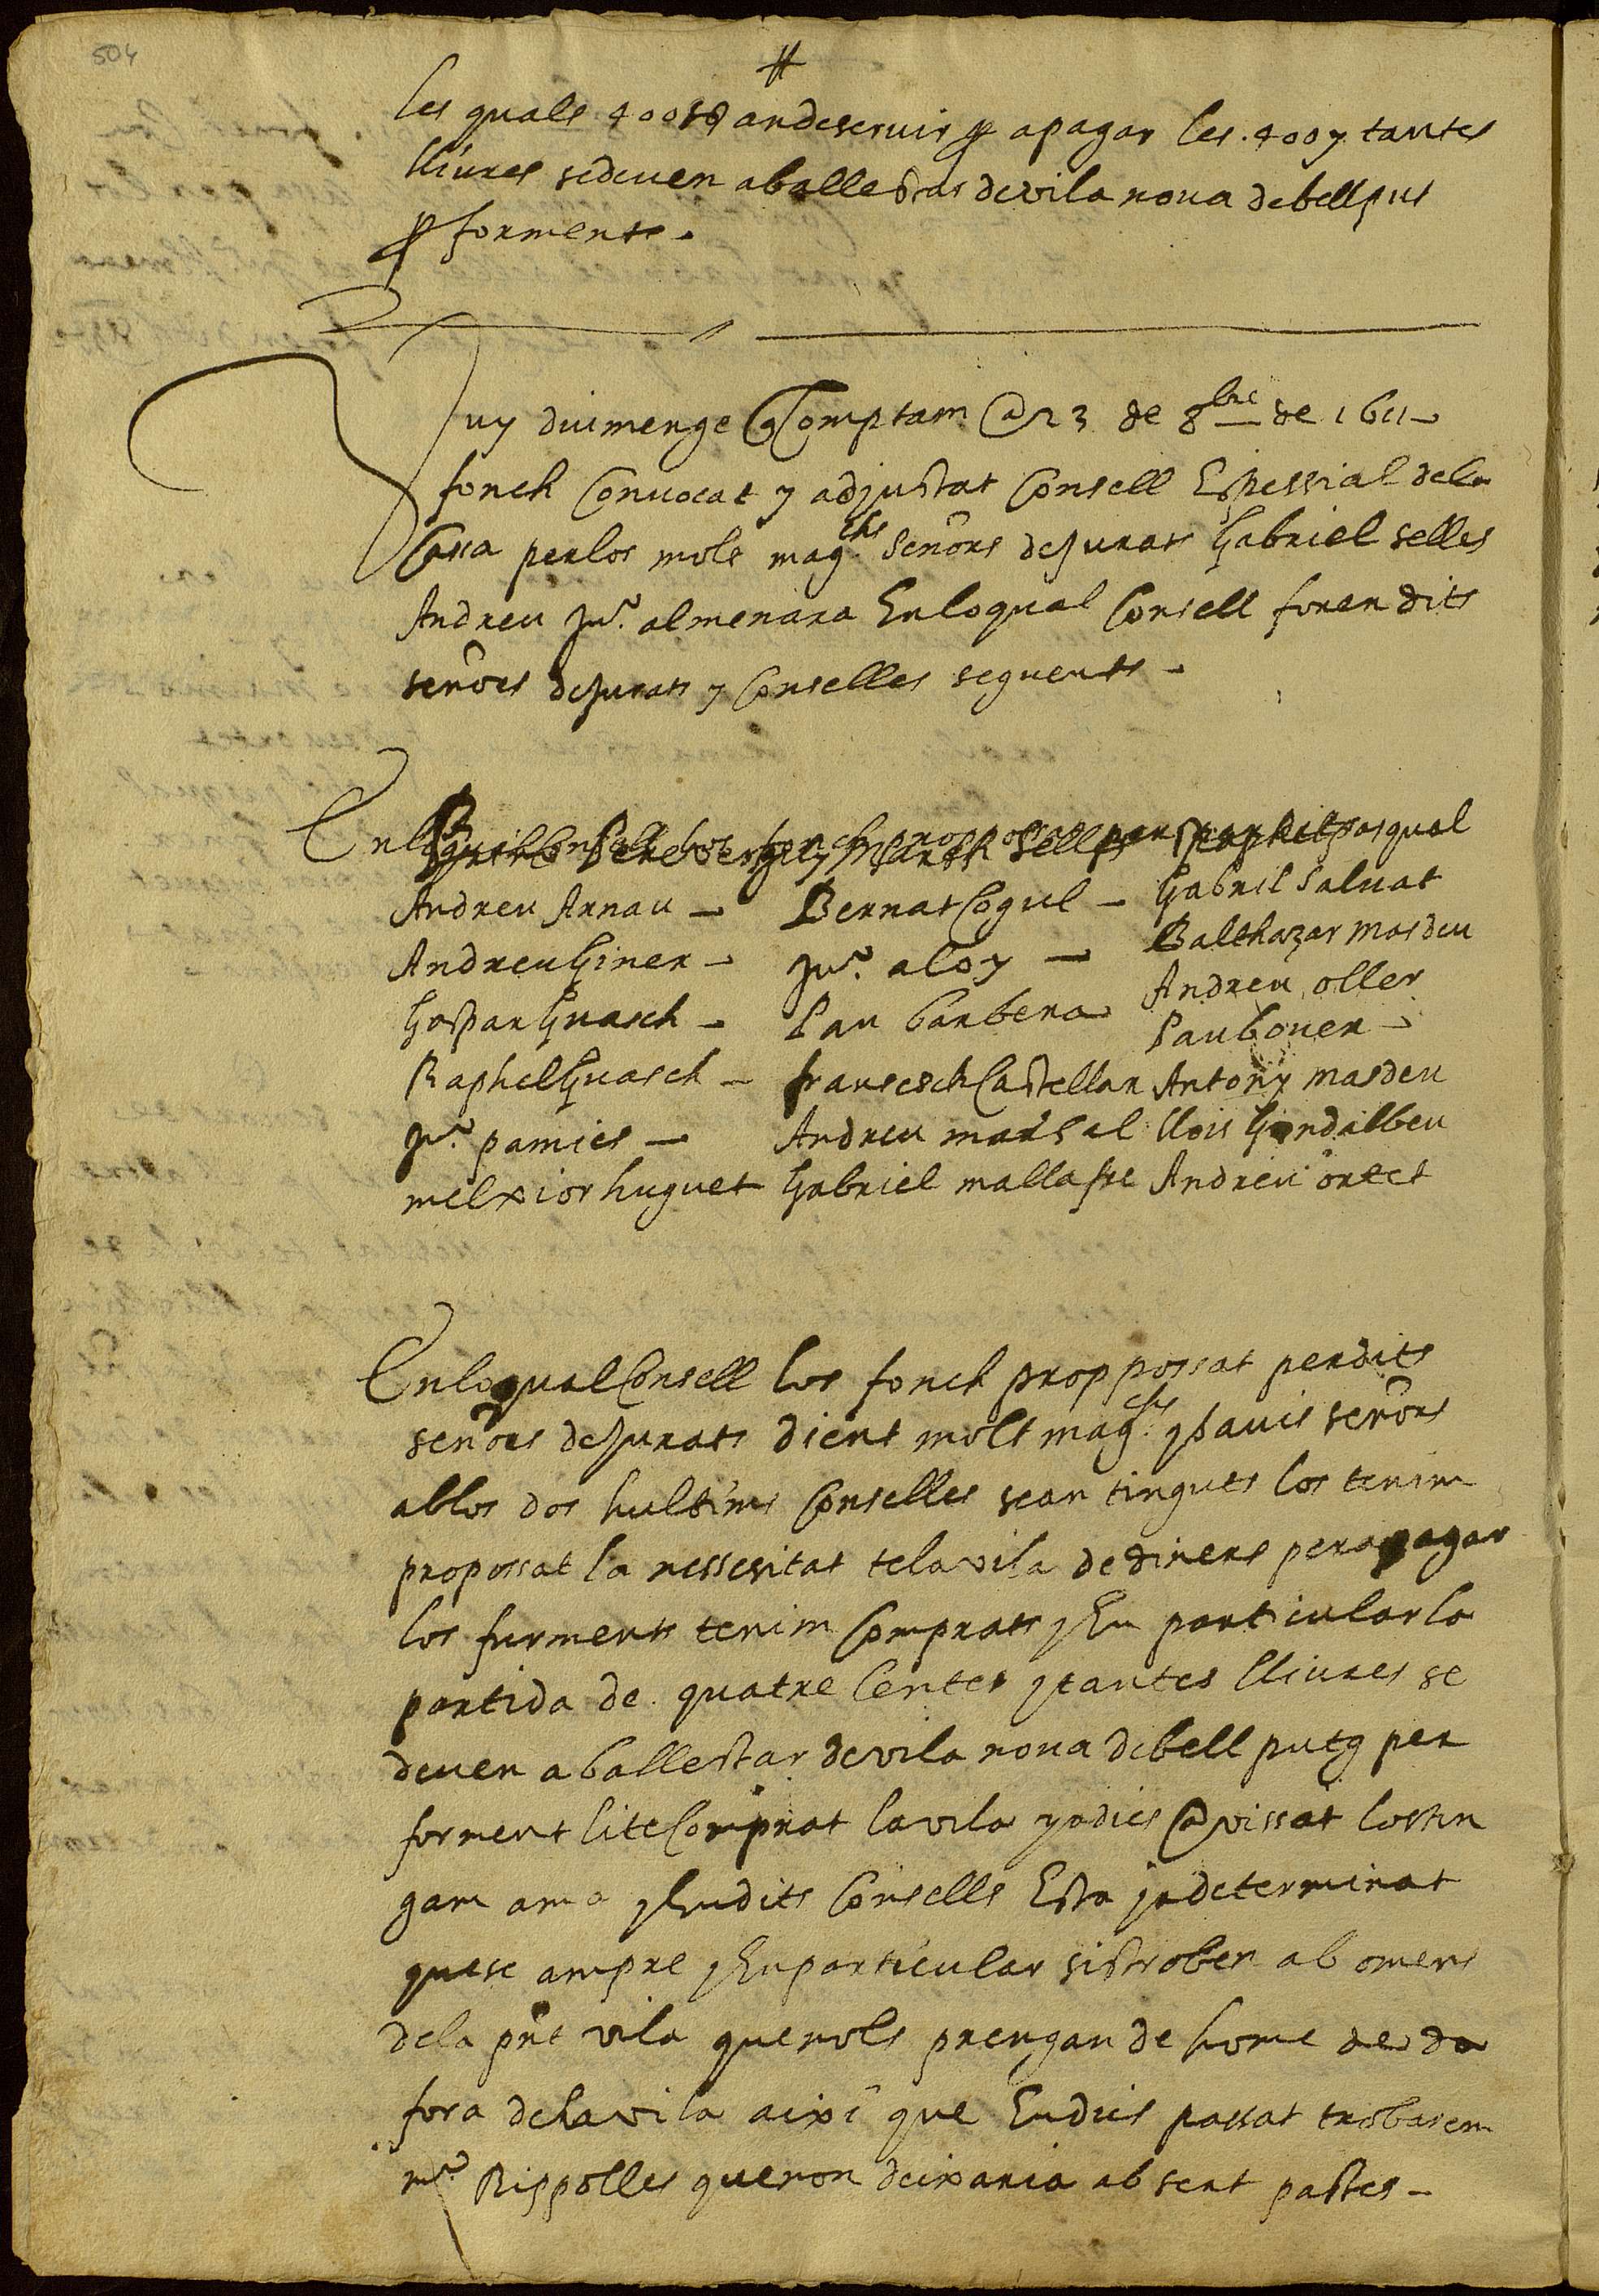 504
les quals 400 ll andeservir p apagar les .400 y tantes
lliures sedeuen aballestar devila nova debellpug
p forments.
Vuy diumenge Comptam a 23 de 8bre de 1611
fonch Convocat y adjustat Consell Espessial dela
Cassa perlos mols magchs señors deJurats Gabriel selles
Andreu Ju.º almenara Enloqual Consell foren dits
señors deJurats y Conselles seguents
Enloqual Consell
pasqual
Andreu Arnau – Bernat Cogul – Gabril Salvat
Andreu Giner – Ju.º aloy – Balthazar masdeu
Gaspar Guasch – Pau barbera Andreu oller
Raphel Guasch – fransesch Castellar Paubover –
Ju.º pamies – Andreu marsal Antony masdeu
melxior huguet Gabriel mallafre llois Gondalbeu
Andreu ortet
Enloqual Consell los fonch proppossat perdits
señors deJurats dient molt magchs y savis señors
ablos dos hultims Conselles sean tinguts los tenim
propossat la nessesitat telavila dediners perapagar
los furments tenim Comprats y En particular la
partida de quatre Centes y tantes lliures se
deuen aballestar devila nova debell putg per
forment lite Comprat lavila y adies avissat lostin
gam ama y Endits Consells Esta ja determinat
quese ampre y Enparticular sistroben ab omens
dela pñt vila quenols prengan de home de da
fora delavila aixi que Endies passat trobarem
mº Rippolles quenon deixaria ab sert pactes –